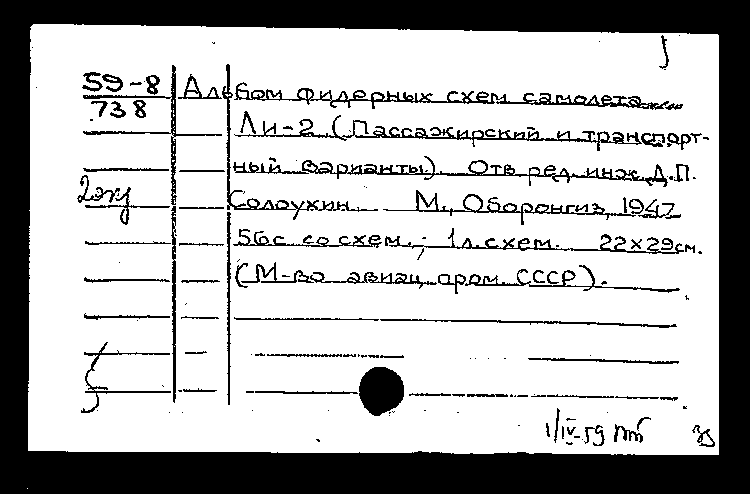 59-8
738
Альбом фидерных схем самолета
Ли-2 (Пассажирский и транспорт-
ный варианты). Отв ред. инж. Д.П.
2экз
Солоухин. М., Оборонгиз, 1947
56с со схем.; 1л. схем. 22х29см.
(М-во авиац. пром. СССР).
1/IV-59